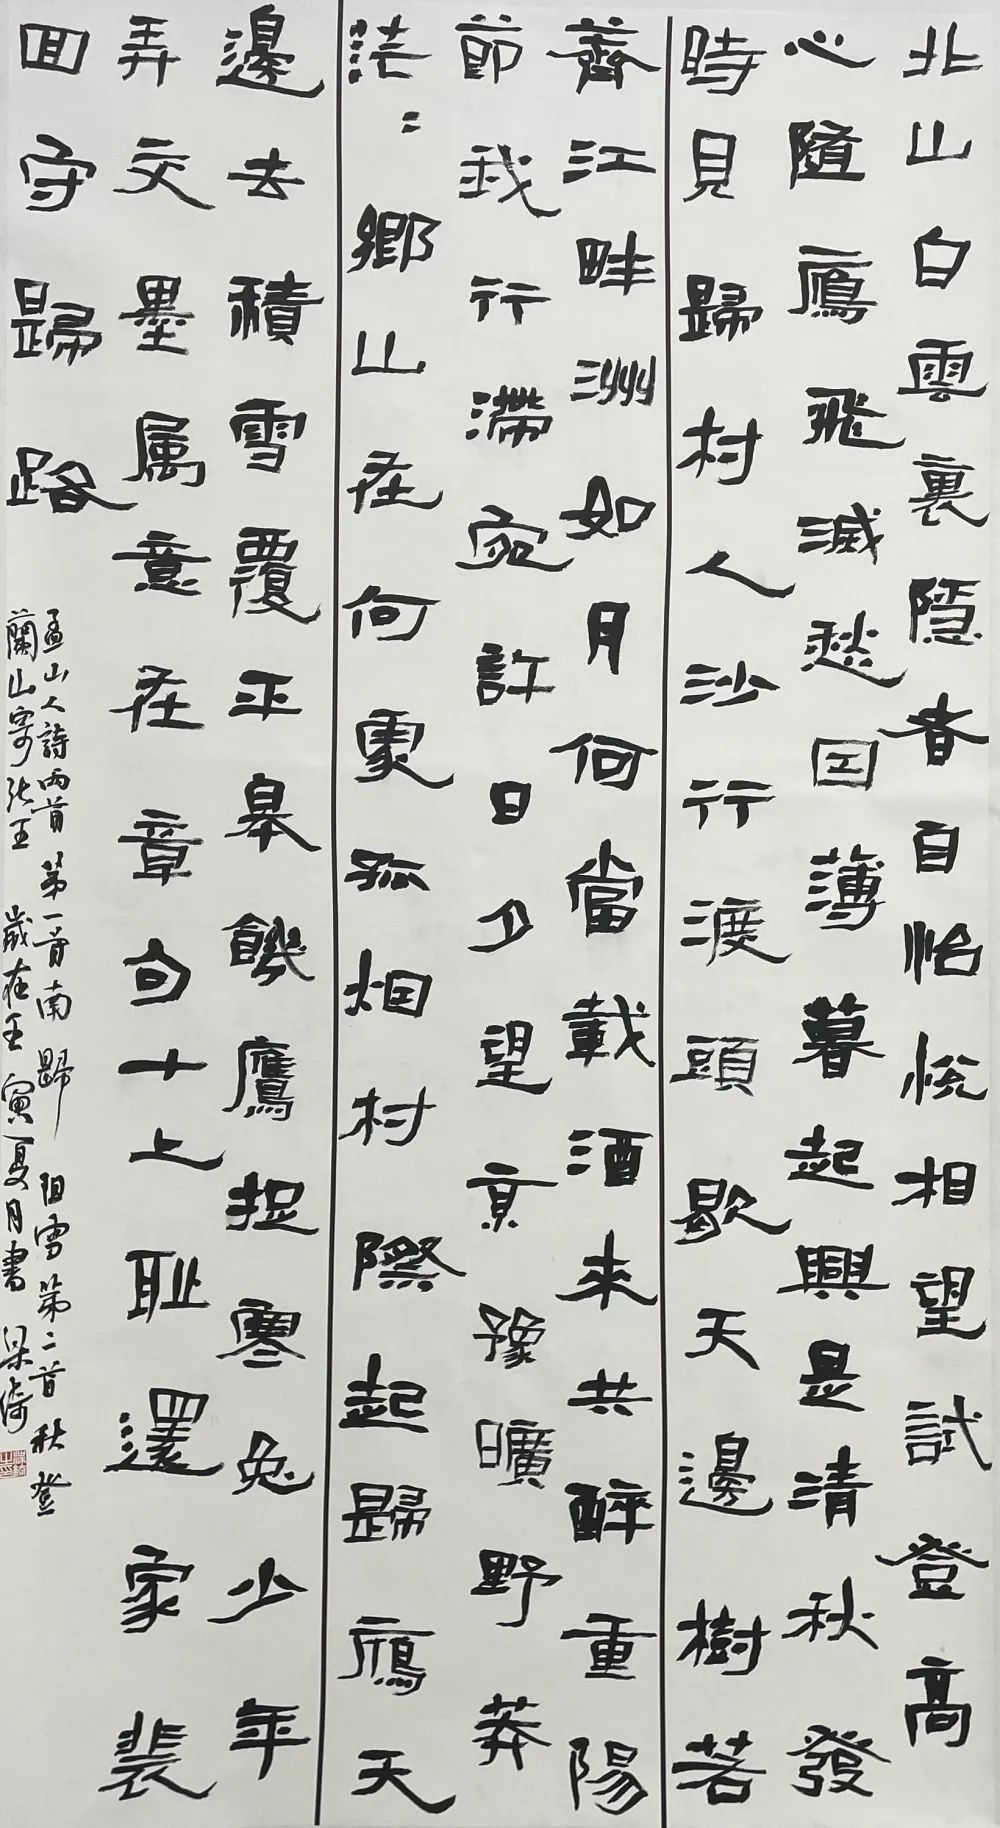 北山白雲裏隱者自怡悅相望試登高
心隨鴈飛滅愁因薄暮起興是清秋發
時見歸村人沙行渡頭歇天邊樹若
薺江畔洲如月何當載酒來共醉重陽
節我行滯宛許日夕望京豫曠野莽
茫〻鄉山在何處孤烟村際起歸鴈天
邊去積雪覆平皋饑鷹捉寒兔少年
弄文墨属意在章句十上耻還家裴
回守歸路
孟山人詩兩首 第一首南歸阻雪第二首秋登
蘭山寄張五 歲在壬寅夏月書 梁